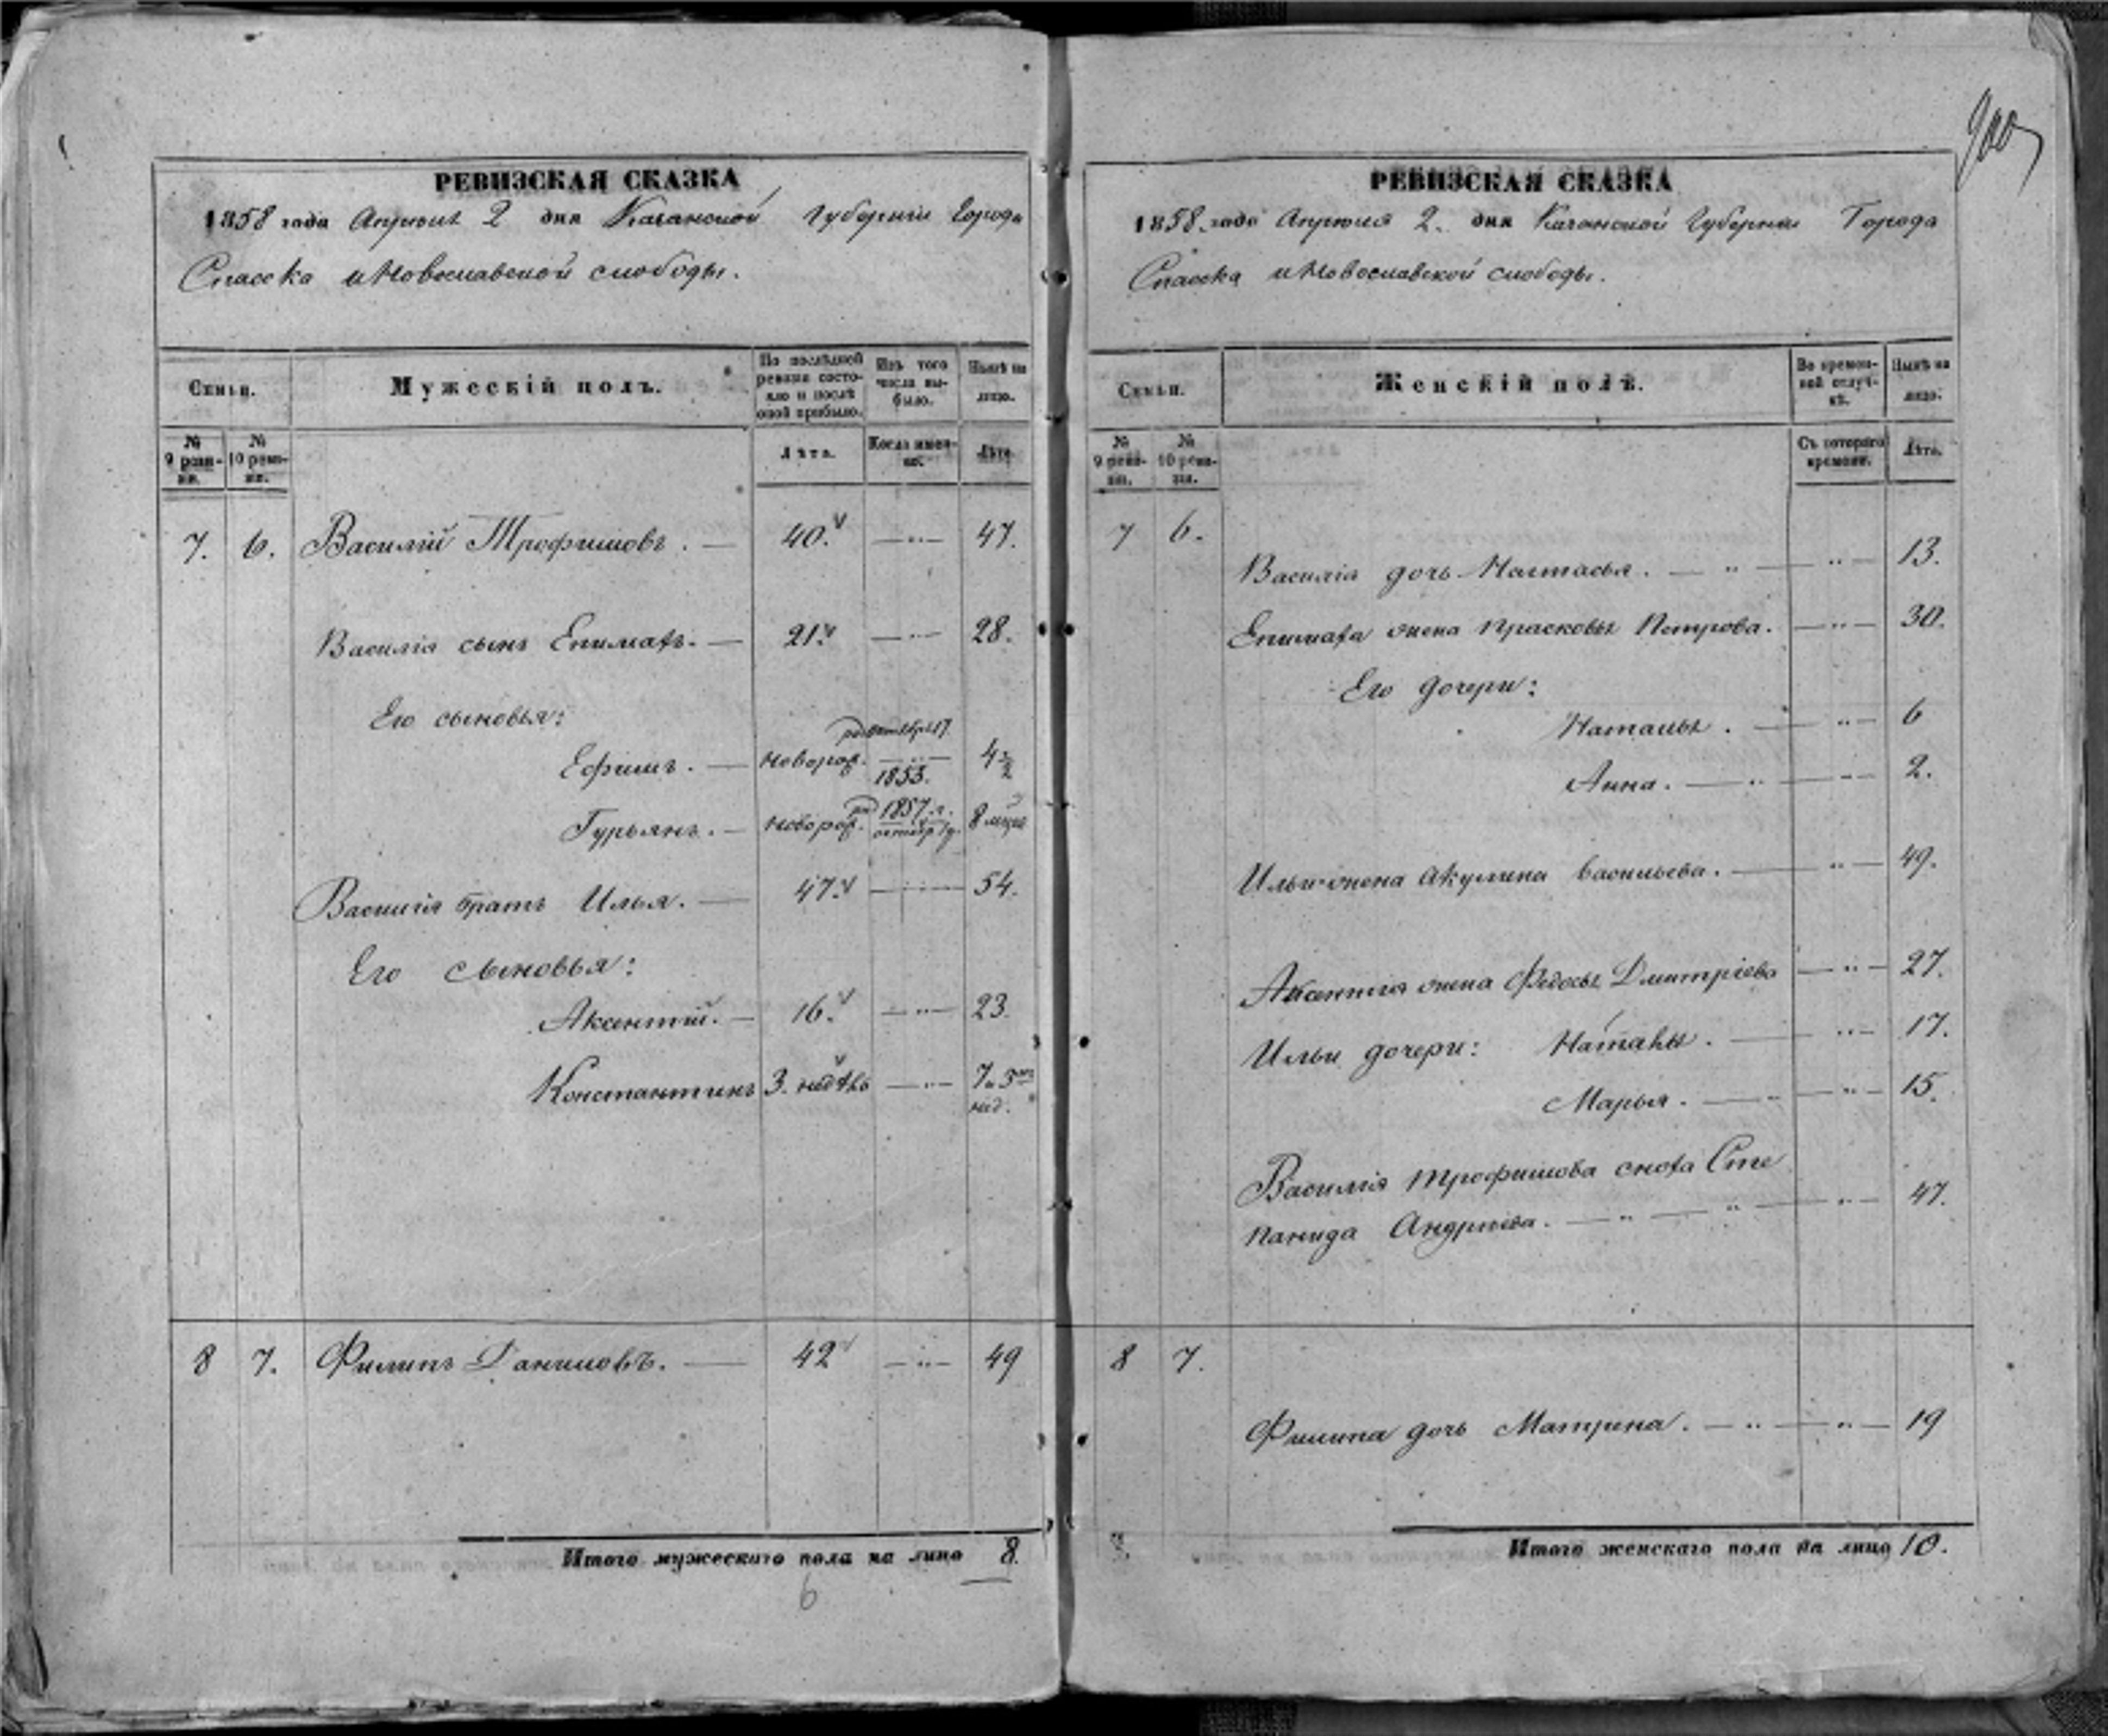 РЕВИЗСКАЯ СКАЗКА
1858 года Апреля 2 дня Казанской Губернии Города
Спасска и Новославской слободы.
Семьи.
Мужескій полъ.
По послѣдней ревизіи состояло и послѣ оной прибыло.
Изъ того числа выбыло.
Нынѣ на лицо.
№ 9 ревизіи.
№ 10 ревизіи.
Лѣта.
Когда именно.
Лѣта.
7. 6. Василій Трофимовъ. — 40. — „ — 47.
Василія сынъ Епимахъ. — 21. — „ — 28.
Его сыновья:
Ефимъ. — новорож. 1853. 4 1/2
Гурьянъ. — новорож. 1857 г. 8 мцов
Василія братъ Илья. — 47. — „ — 54.
Его сыновья:
Аксентій. — 16. — „ — 23.
Константинъ 3. недѣль — „ — 7 и 3
нед.
8 7. Филипъ Даниловъ. — 42 — „ — 49
Итого мужескаго пола на лицо 8.
6
900
РЕВИЗСКАЯ СКАЗКА
1858 года Апреля 2. дня Казанской Губернии Города
Спасска и Новославской слободы.
Семьи.
Женскій полъ.
Во временной отлучкѣ.
Нынѣ на лицо.
№ 9 ревизіи.
№ 10 ревизіи.
Съ котораго времени.
Лѣта.
7 6.
Василія дочь Настасья. — „ — „ — 13.
Епимаха жена Прасковья Петрова. — „ — 30.
Его дочери:
Наталья. — „ — 6
Анна. — „ — „ — 2.
Ильи жена Акулина Васильева. — „ — 49.
Аксентия жена Федосья Дмитріева — „ — 27.
Ильи дочери: Наталья. — „ — 17.
Марья. — „ — „ — 15.
Василія Трофимова сноха Сте
панида Андреева. — „ — „ — „ — 47.
8 7.
Филипа дочь Матрена. — „ — „ — 19
Итого женскаго пола на лицо 10.